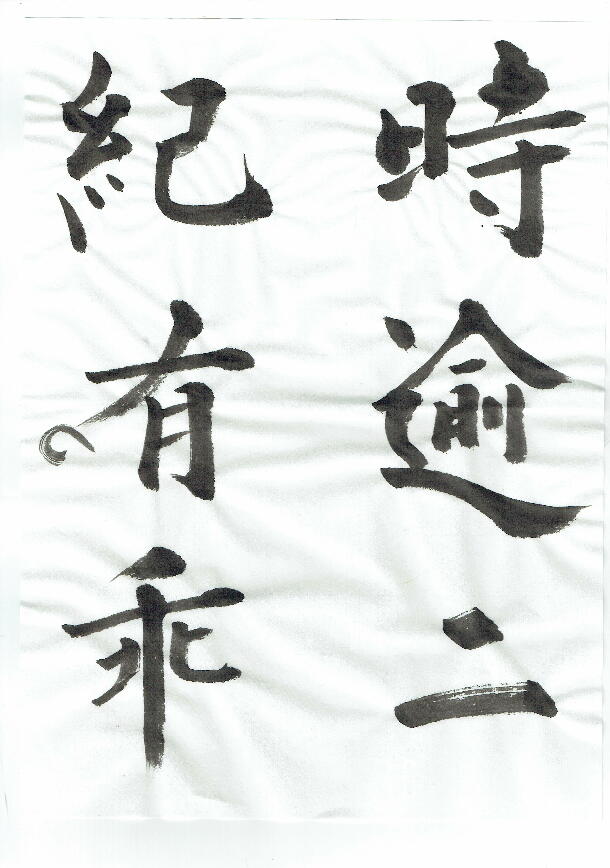 時逾二
紀有乖